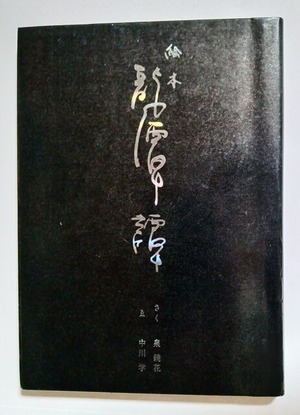 絵本
龍潭譚
さく 泉鏡花
ゑ 中川学